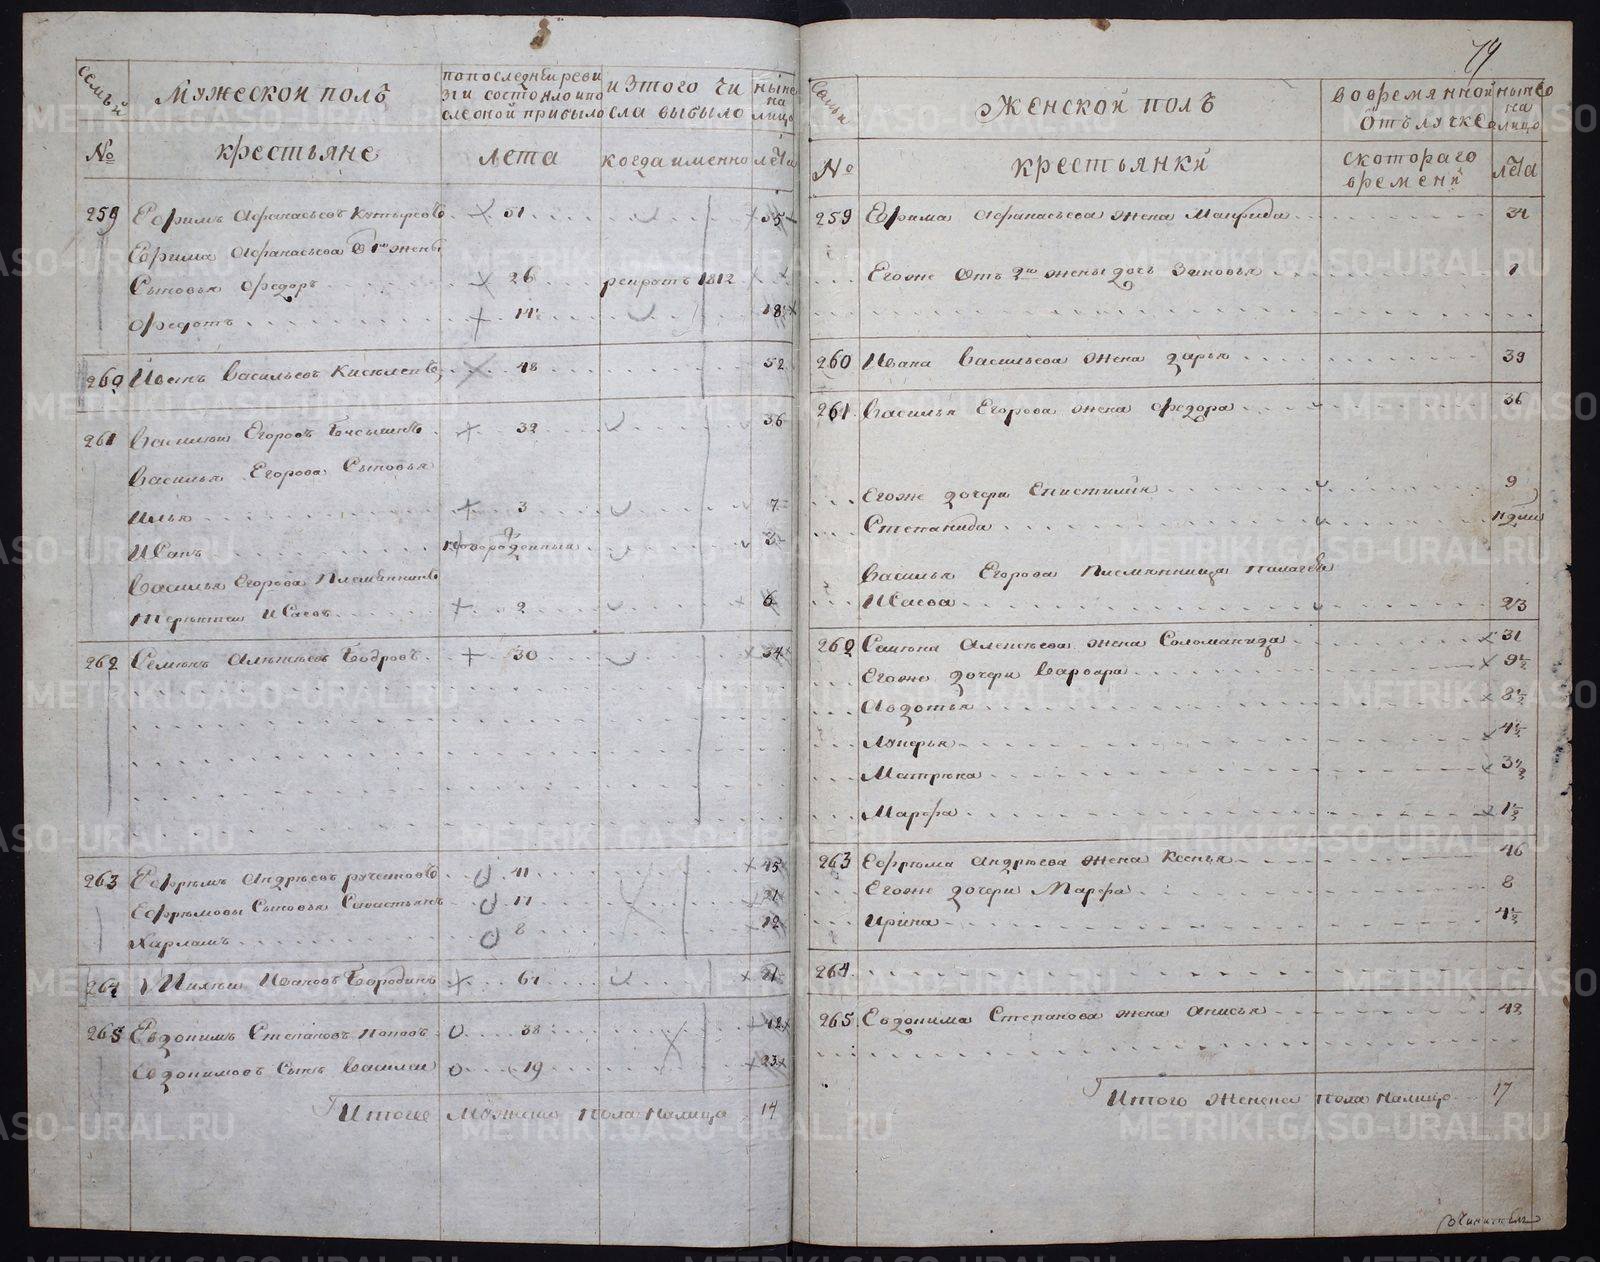 79
Семьи
Мужеской полъ
попоследней реви
зіи состояло ипо
слеоной прибыло
иэтого чи
сла выбыло
ныне
на
лицо
№
крестьяне
лета
когда именно
лета
259 Ефримъ Афонасьевъ 51 55
Ефрима Афонасьева От 1й жены
Сыновья Федоръ 26 рекрутъ 1812
Федотъ 14 18
260 Иванъ Васильевъ 48 52
261 Василий Егоровъ 32 36
Василья Егорова Сыновья
Илья 3 7
Иванъ Новорожденный 3
Василья Егорова Племянникъ
Терентий Исаевъ 2 6
262 Семионъ Алексеевъ Бобровъ 30 34
263 Ефремъ Андреевъ 41 45
Ефремовы Сыновья Савастьянъ 17 21
Харламъ 8 12
264 Михей Ивановъ Бородинъ 67 71
265 Евдокимъ Степановъ Поповъ 38 42
Евдокимовъ Сынъ Василей 19 23
Итого Мужеска пола налицо 14
Семьи
Женской полъ
вовремянной
отълучке
ныне
на
лицо
№
крестьянки
скотораго
времени
лета
259 Ефрима Афонасьева жена Маврида 34
Егоже От 2й жены дочь Зиновья 1
260 Ивана Васильева жена Дарья 39
261 Василья Егорова жена Федора 36
Егоже дочери 9
Степанида
Василья Егорова Племянница Палагея
Исаева 23
262 Семиона Алексеева жена Соломанида 31
Егоже дочери Варвара 9½
Авдотья 8½
Лукерья 4½
Матрена 3½
Марфа 1½
263 Ефрема Андреева жена Ксенья 46
Егоже дочери Марфа 8
Ирина 4½
264
265 Евдокима Степанова жена Анисья 42
Итого Женска пола налицо 17